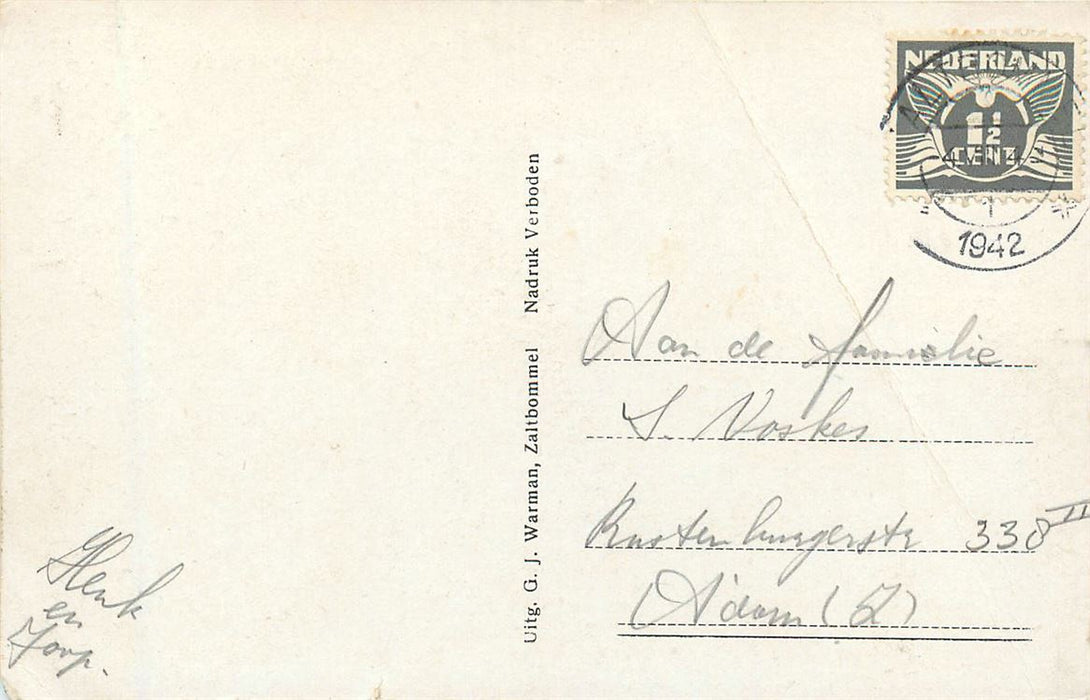 NEDERLAND
1½
CENT
4. VIII 4
1
1942
Uitg. G. J. Warman, Zaltbommel Nadruk Verboden
Aan de familie
S. Voskes
Rustenburgerstr 338 II
A'dam (Z)
Henk
en
Joop.